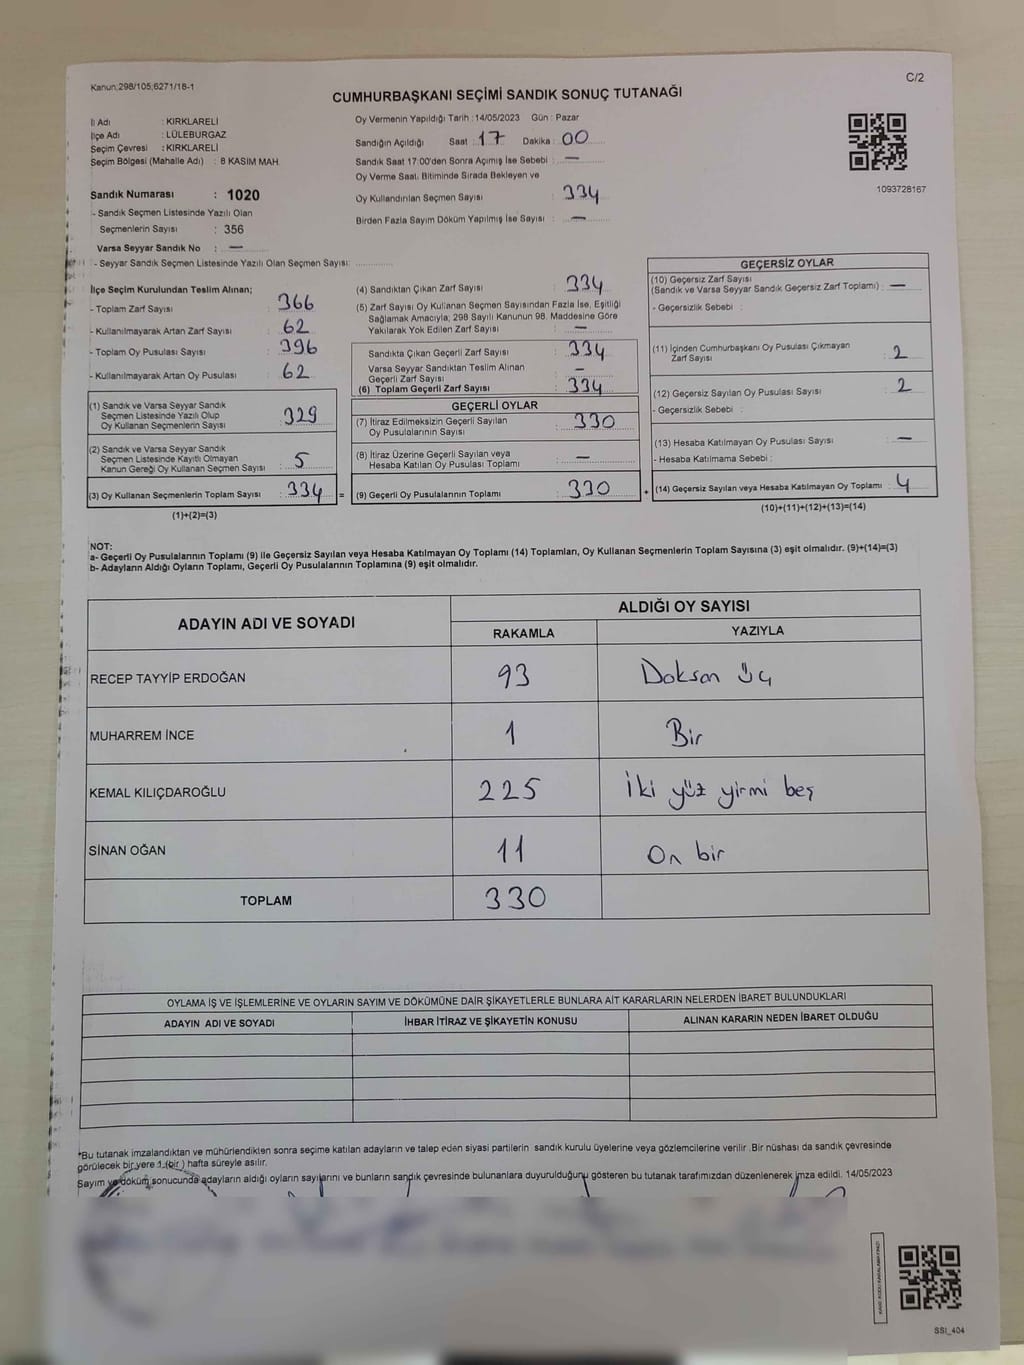 Kanun:298/105;6271/18-1
C/2
CUMHURBAŞKANI SEÇİMİ SANDIK SONUÇ TUTANAĞI
İl Adı : KIRKLARELİ
İlçe Adı : LÜLEBURGAZ
Seçim Çevresi : KIRKLARELİ
Seçim Bölgesi (Mahalle Adı) : 8 KASIM MAH.
Sandık Numarası : 1020
- Sandık Seçmen Listesinde Yazılı Olan
Seçmenlerin Sayısı : 356
Varsa Seyyar Sandık No : —
- Seyyar Sandık Seçmen Listesinde Yazılı Olan Seçmen Sayısı:
Oy Vermenin Yapıldığı Tarih : 14/05/2023 Gün : Pazar
Sandığın Açıldığı Saat : 17 Dakika : 00
Sandık Saat 17:00'den Sonra Açımış İse Sebebi : —
Oy Verme Saat. Bitiminde Sırada Bekleyen ve
Oy Kullandırılan Seçmen Sayısı : 334
Birden Fazla Sayım Döküm Yapılmış İse Sayısı : —
1093728167
İlçe Seçim Kurulundan Teslim Alınan;
- Toplam Zarf Sayısı : 366
- Kullanılmayarak Artan Zarf Sayısı : 62
- Toplam Oy Pusulası Sayısı : 396
- Kullanılmayarak Artan Oy Pusulası : 62
(1) Sandık ve Varsa Seyyar Sandık
Seçmen Listesinde Yazılı Olup
Oy Kullanan Seçmenlerin Sayısı : 329
(2) Sandık ve Varsa Seyyar Sandık
Seçmen Listesinde Kayıtlı Olmayan
Kanun Gereği Oy Kullanan Seçmen Sayısı : 5
(3) Oy Kullanan Seçmenlerin Toplam Sayısı : 334 =
(1)+(2)=(3)
(4) Sandıktan Çıkan Zarf Sayısı : 334
(5) Zarf Sayısı Oy Kullanan Seçmen Sayısından Fazla İse, Eşitliği
Sağlamak Amacıyla, 298 Sayılı Kanunun 98. Maddesine Göre
Yakılarak Yok Edilen Zarf Sayısı : —
Sandıkta Çıkan Geçerli Zarf Sayısı : 334
Varsa Seyyar Sandıktan Teslim Alınan
Geçerli Zarf Sayısı : —
(6) Toplam Geçerli Zarf Sayısı : 334
GEÇERLİ OYLAR
(7) İtiraz Edilmeksizin Geçerli Sayılan
Oy Pusulalarının Sayısı : 330
(8) İtiraz Üzerine Geçerli Sayılan veya
Hesaba Katılan Oy Pusulası Toplamı : —
(9) Geçerli Oy Pusulalarının Toplamı : 330 +
GEÇERSİZ OYLAR
(10) Geçersiz Zarf Sayısı
(Sandık ve Varsa Seyyar Sandık Geçersiz Zarf Toplamı) : —
- Geçersizlik Sebebi :
(11) İçinden Cumhurbaşkanı Oy Pusulası Çıkmayan
Zarf Sayısı : 2
(12) Geçersiz Sayılan Oy Pusulası Sayısı : 2
- Geçersizlik Sebebi :
(13) Hesaba Katılmayan Oy Pusulası Sayısı : —
- Hesaba Katılmama Sebebi :
(14) Geçersiz Sayılan veya Hesaba Katılmayan Oy Toplamı : 4
(10)+(11)+(12)+(13)=(14)
NOT:
a- Geçerli Oy Pusulalarının Toplamı (9) ile Geçersiz Sayılan veya Hesaba Katılmayan Oy Toplamı (14) Toplamları, Oy Kullanan Seçmenlerin Toplam Sayısına (3) eşit olmalıdır. (9)+(14)=(3)
b- Adayların Aldığı Oyların Toplamı, Geçerli Oy Pusulalarının Toplamına (9) eşit olmalıdır.
ADAYIN ADI VE SOYADI ALDIĞI OY SAYISI
RAKAMLA YAZIYLA
RECEP TAYYİP ERDOĞAN 93 Doksan üç
MUHARREM İNCE 1 Bir
KEMAL KILIÇDAROĞLU 225 İki yüz yirmi beş
SİNAN OĞAN 11 On bir
TOPLAM 330
OYLAMA İŞ VE İŞLEMLERİNE VE OYLARIN SAYIM VE DÖKÜMÜNE DAİR ŞİKAYETLERLE BUNLARA AİT KARARLARIN NELERDEN İBARET BULUNDUKLARI
ADAYIN ADI VE SOYADI İHBAR İTİRAZ VE ŞİKAYETİN KONUSU ALINAN KARARIN NEDEN İBARET OLDUĞU
*Bu tutanak imzalandıktan ve mühürlendikten sonra seçime katılan adayların ve talep eden siyasi partilerin sandık kurulu üyelerine veya gözlemcilerine verilir. Bir nüshası da sandık çevresinde
görülecek bir yere 1 (bir) hafta süreyle asılır.
Sayım ve döküm sonucunda adayların aldığı oyların sayılarını ve bunların sandık çevresinde bulunanlara duyurulduğunu gösteren bu tutanak tarafımızdan düzenlenerek imza edildi. 14/05/2023
SSI_404